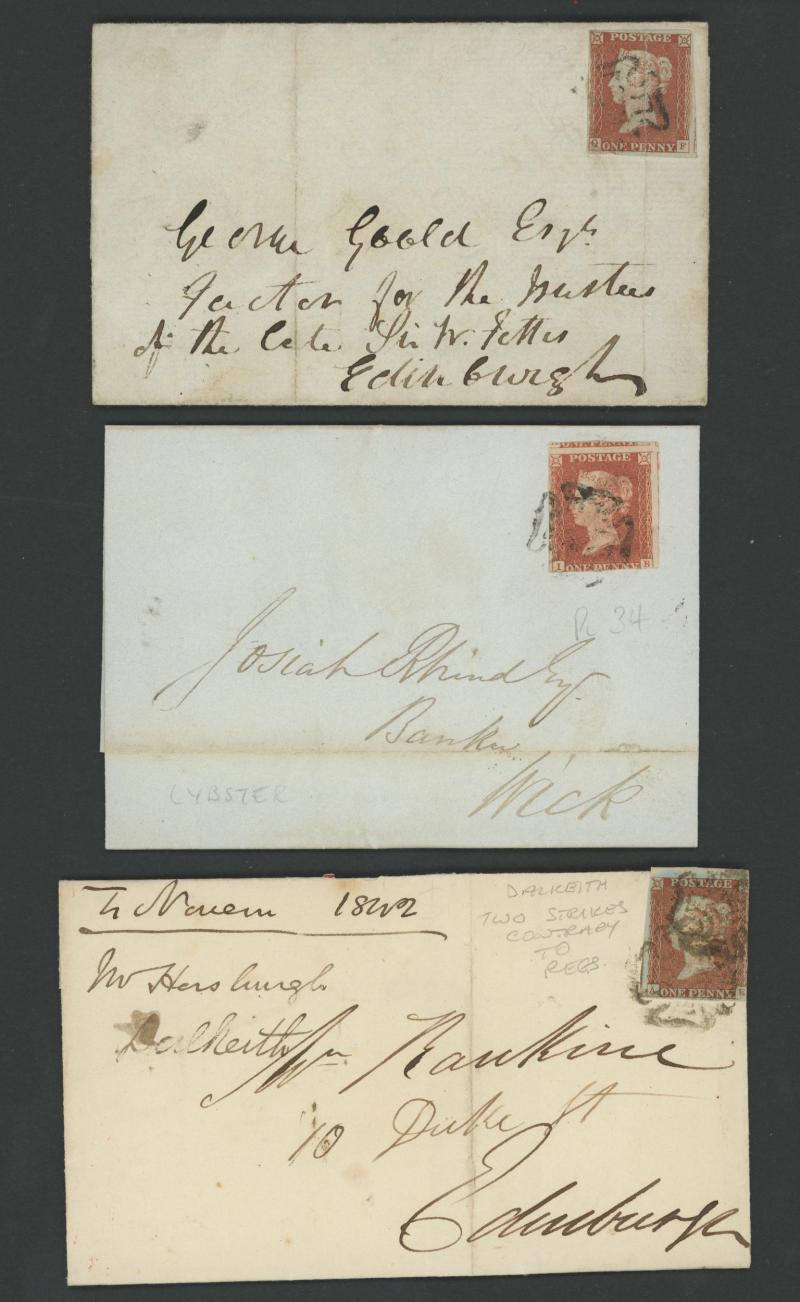 POSTAGE
ONE PENNY
Q F
George Goold Esqr
Factor for the Trustees
of the late Sir W. Fettes
Edinburgh
ONE PENNY
POSTAGE
I ONE PENNY B
Pl 34
Josiah Rhind Esq.
Banker
Wick
LYBSTER
POSTAGE
A ONE PENNY E
DALKEITH
TWO STRIKES
CONTRARY
TO
REGS.
4 Novem 1842
Mr Horsburgh
Dalkeith
Wm Rankine
10 Duke St
Edinburgh